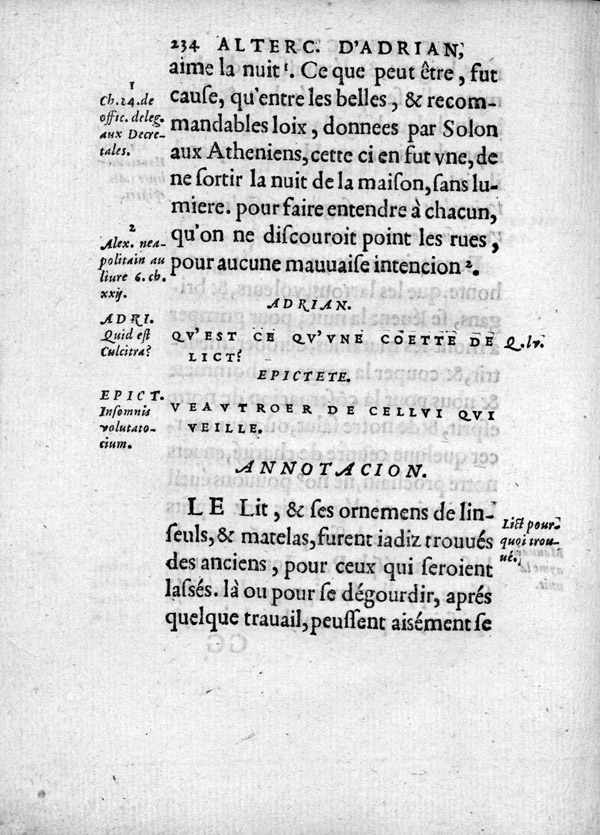 234 ALTERC. D'ADRIAN,
aime la nuit¹. Ce que peut être, fut
cauſe, qu'entre les belles, & recom-
mandables loix, donnees par Solon
aux Atheniens, cette ci en fut vne, de
ne ſortir la nuit de la maiſon, ſans lu-
miere. pour faire entendre à chacun,
qu'on ne diſcouroit point les rues,
pour aucune mauuaiſe intencion².
1
Ch. 24. de
offic. deleg.
aux Decre-
tales.
2
Alex. nea-
politain au
liure 6. ch.
xxij.
ADRIAN.
ADRI.
Quid eſt
Culcitra?
QV'EST CE QV'VNE COETTE DE
LICT?
Q. lv.
EPICTETE.
EPICT.
Inſomnis
volutato-
cium.
VEAVTROER DE CELLVI QVI
VEILLE.
ANNOTACION.
LE Lit, & ſes ornemens de lin-
ſeuls, & matelas, furent iadiz trouués
des anciens, pour ceux qui ſeroient
laſſés. là ou pour ſe dégourdir, aprés
quelque trauail, peuſſent aisément ſe
Lict pour-
quoi trou-
ué.